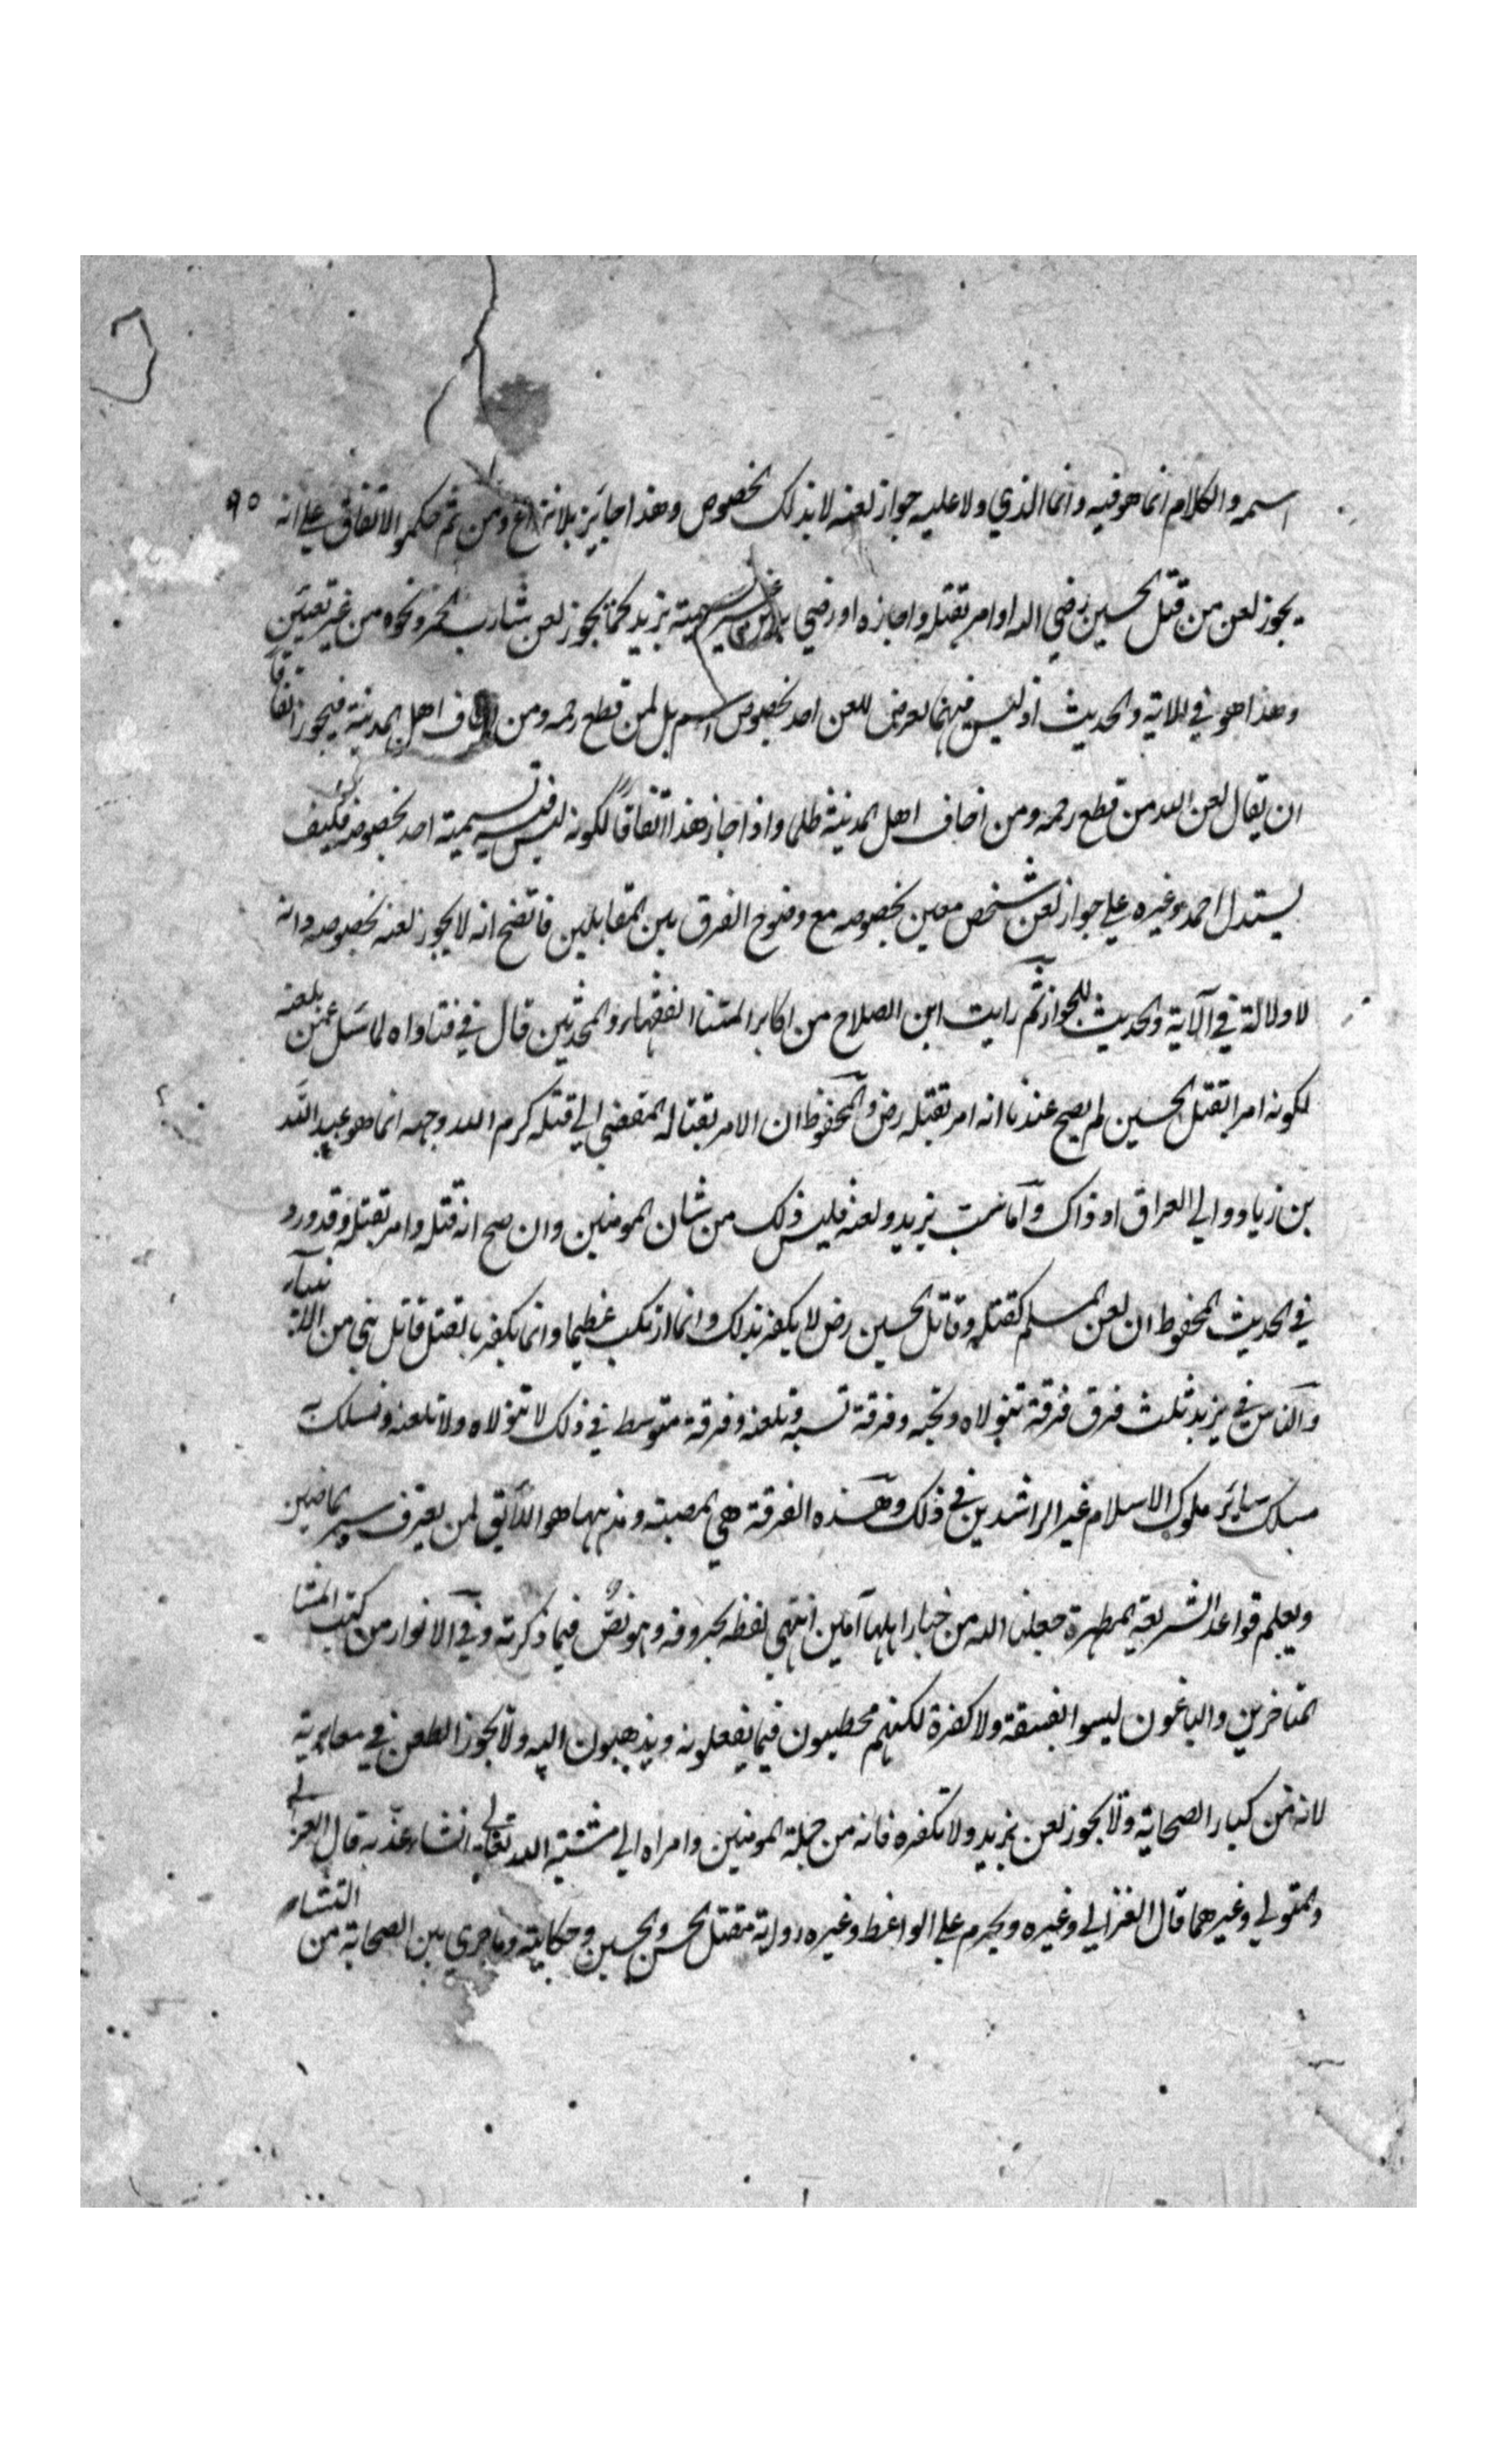 اسمه والكلام انما هو فيه وانما الذي دلا عليه جواز لعنه لا بذلك الخصوص وهذا جايز بلا نزاع ومن ثم حكموا الاتفاق على انه ٩٥
يجوز لعن من قتل الحسين رضي الله او امر بقتله واجازه او رضي به من غير تسمية يزيد كما يجوز لعن شارب الخمر ونحوه من غير تعيين
وهذا هو في الاية والحديث اذ ليس فيهما تعرض للعن احد بخصوص اسم بل لمن قطع رحمه ومن اخاف اهل المدينة فيجوز اتفاقا
ان يقال لعن الله من قطع رحمه ومن اخاف اهل المدينة ظلما واذا جاز هذا اتفاقًا لكونه ليس فيه تسمية احد بخصوصه فكيف
يستدل احمد وغيره على جواز لعن شخص معين بخصوصه مع وضوح الفرق بين المقابلين فاتضح انه لا يجوز لعنه بخصوصه وانه
لا دلالة في الآية والحديث للجواز ثم رايت ابن الصلاح من اكابر ائمتنا الفقهاء والمحدثين قال في فتاواه لما سئل عمن يلعنه
لكونه امرا بقتل الحسين لم يصح عندنا انه امر بقتله رض والمحفوظ ان الامر بقتاله المفضي الى قتله كرم الله وجهه انما هو عبيد الله
بن زياد والي العراق اذ ذاك واما سب يزيد ولعنه فليس ذلك من شان المومنين وان صح انه قتله وامر بقتله وقد ورد
في الحديث المحفوظ ان لعن المسلم كقتله وقاتل الحسين رض لا يكفر بذلك وانما ارتكب عظيما وانما يكفر بالقتل قاتل نبي من الانبيآء
والناس في يزيد ثلث فرق فرقة تتولاه وتحبه وفرقة تسبه وتلعنه وفرقة متوسط في ذلك لا تتولاه ولا تلعنه وتسلك به
مسلك ساير ملوك الاسلام غير الراشدين في ذلك وهذه الفرقة هي المصيبة ومذهبها هو اللائق لمن يعرف سير الماضين
ويعلم قواعد الشريعة المطهرة جعلنا الله من خيار اهلها آمين انتهى لفظه بحروفه وهو نصٌ فيما ذكرته وفي الانوار من كتب ائمتنا
المتاخرين والباغون ليسوا بفسقة ولا كفرة لكنهم مخطيون فيما يفعلونه ويذهبون اليه ولا يجوز الطعن في معاوية
لانه من كبار الصحابة ولا يجوز لعن يزيد ولا تكفره فانه من جملة المومنين وامراه الى مشئية الله تعالى ان شاء عذبه قال الغزالي
والمتولي وغيرهما قال الغزالي وغيره ويحرم على الواعظ وغيره رواية مقتل الحسن والحسين وحكايته وما جرى بين الصحابة من التشاجر